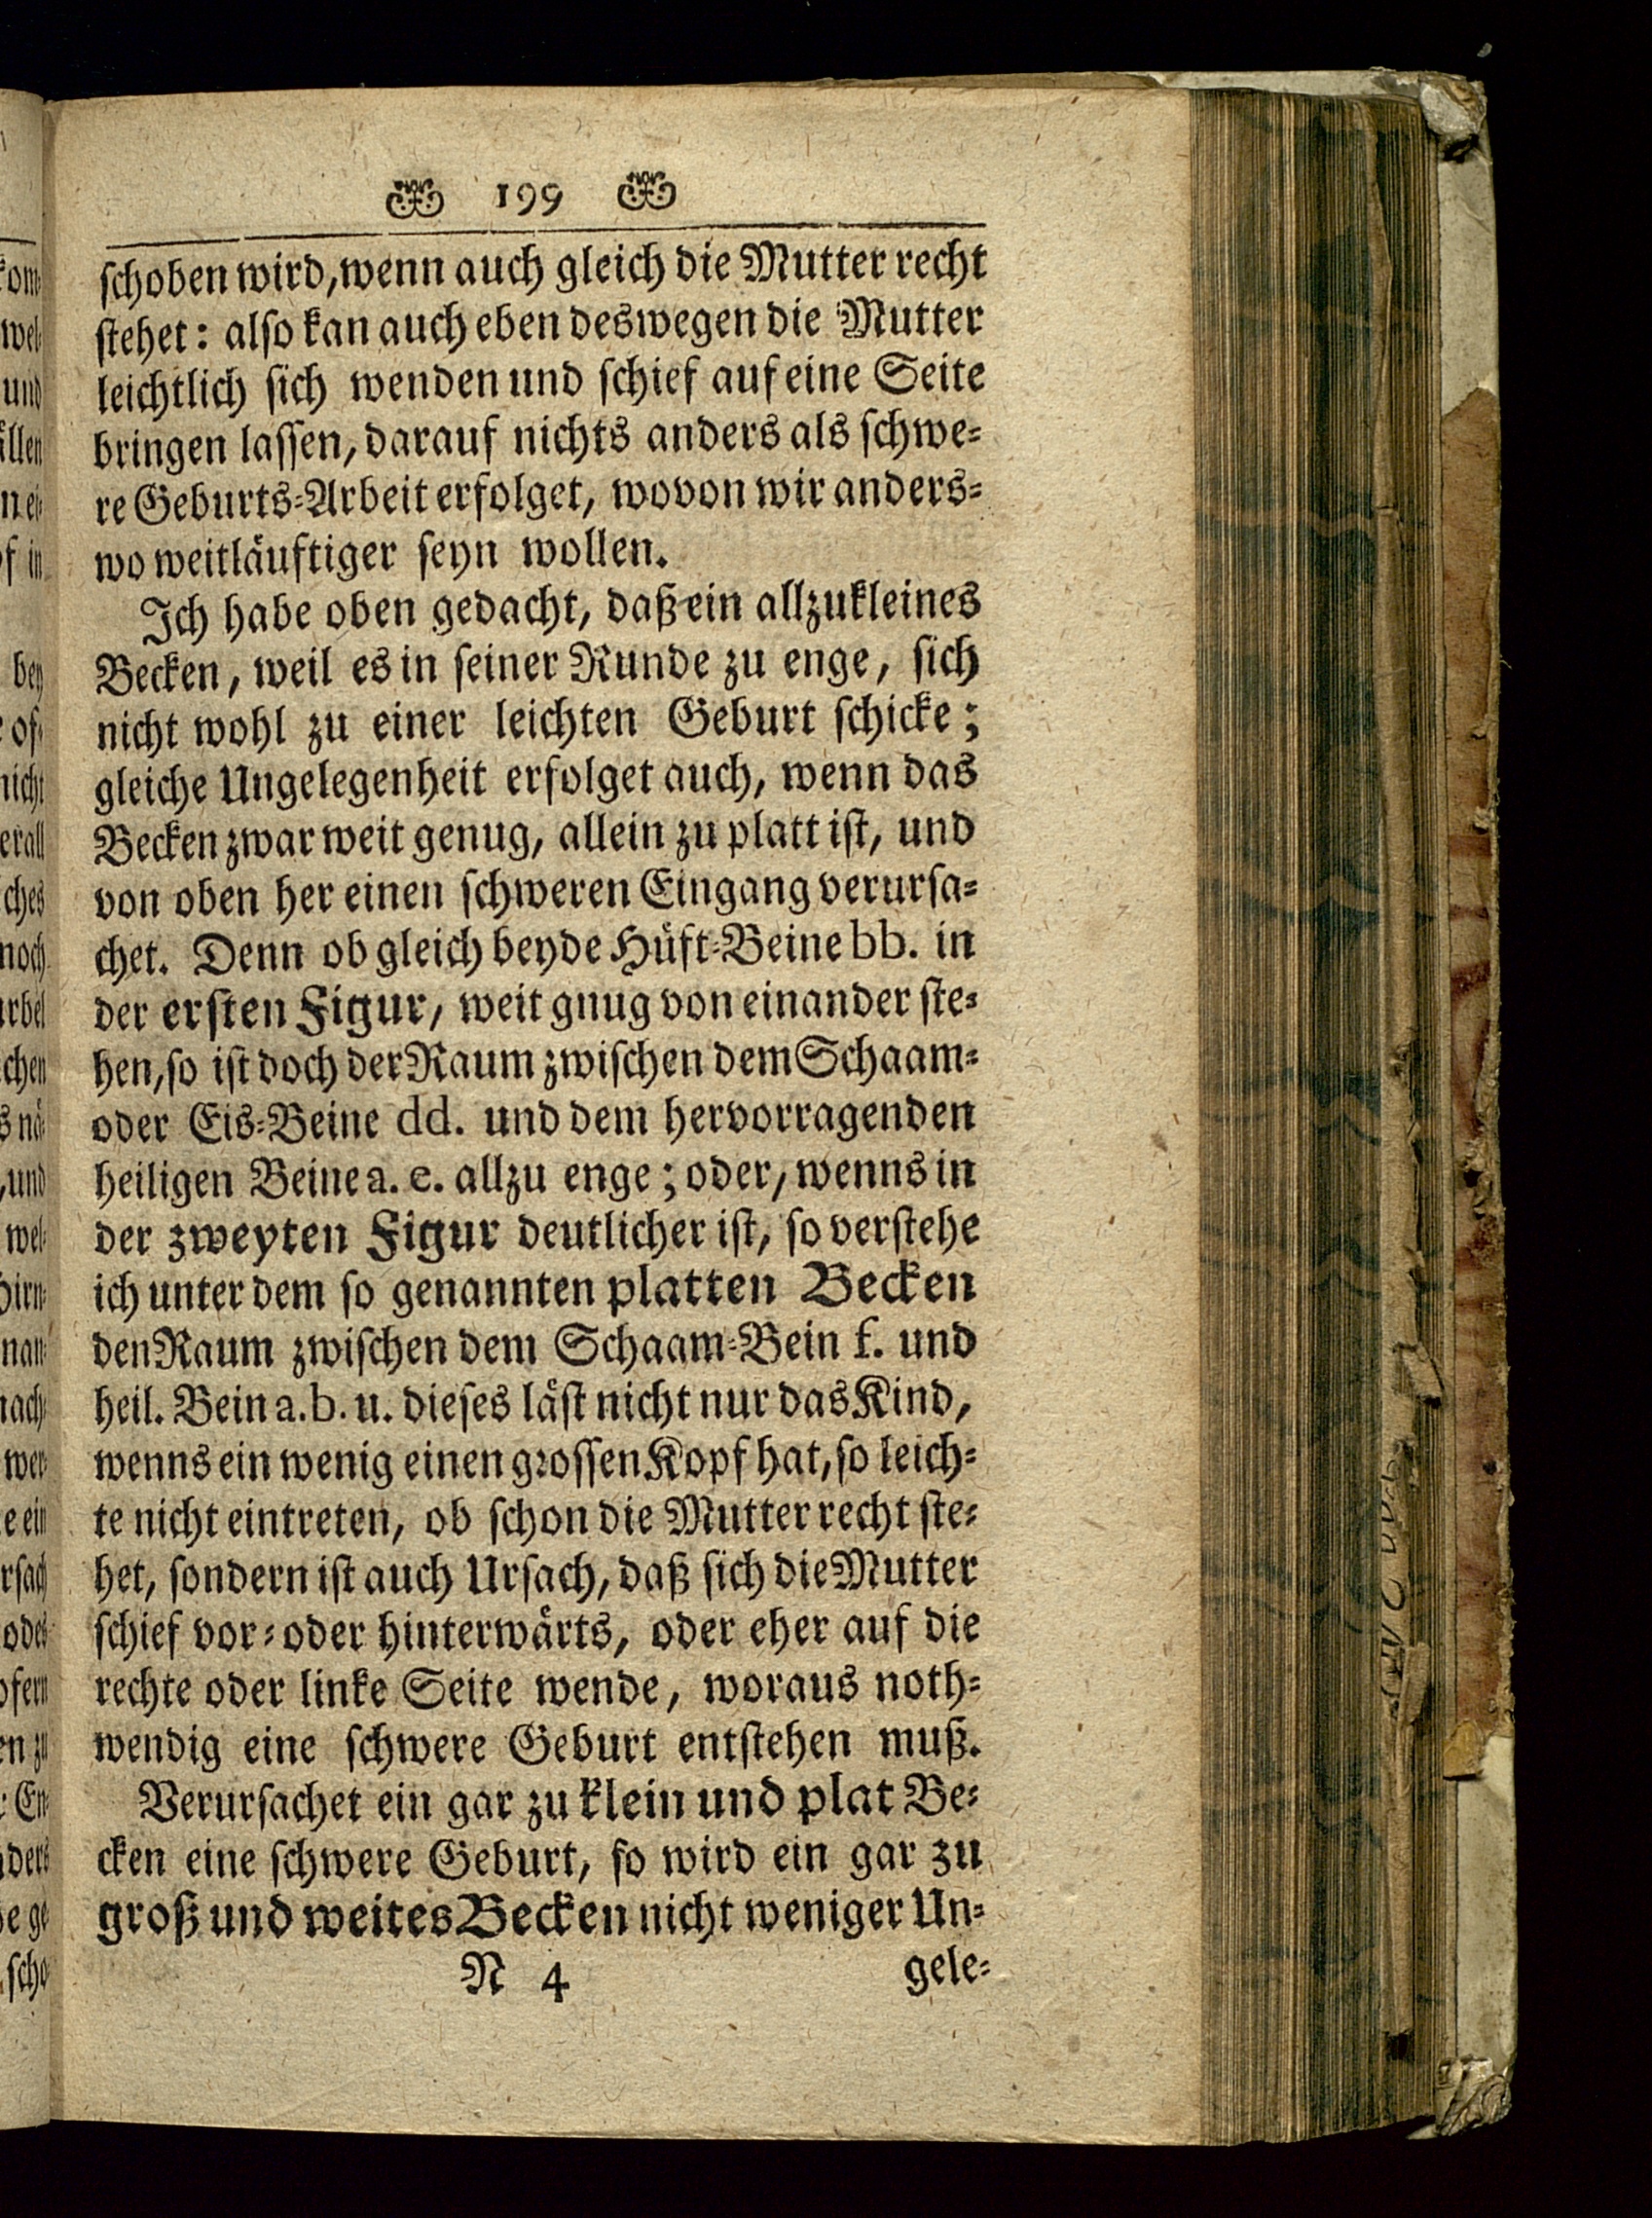 199
schoben wird, wenn auch gleich die Mutter recht
stehet: also kan auch eben deswegen die Mutter
leichtlich sich wenden und schief auf eine Seite
bringen lassen, darauf nichts anders als schwe=
re Geburts=Arbeit erfolget, wovon wir anders=
wo weitläuftiger seyn wollen.
Ich habe oben gedacht, daß ein allzukleines
Becken, weil es in seiner Runde zu enge, sich
nicht wohl zu einer leichten Geburt schicke;
gleiche Ungelegenheit erfolget auch, wenn das
Becken zwar weit genug, allein zu platt ist, und
von oben her einen schweren Eingang verursa=
chet. Denn ob gleich beyde Hüft=Beine bb. in
der ersten Figur, weit gnug von einander ste=
hen, so ist doch der Raum zwischen dem Schaam=
oder Eis=Beine dd. und dem hervorragenden
heiligen Beine a. e. allzu enge; oder, wenns in
der zweyten Figur deutlicher ist, so verstehe
ich unter dem so genannten platten Becken
den Raum zwischen dem Schaam=Bein f. und
heil. Bein a. b. u. dieses läst nicht nur das Kind,
wenns ein wenig einen grossen Kopf hat, so leich=
te nicht eintreten, ob schon die Mutter recht ste=
het, sondern ist auch Ursach, daß sich die Mutter
schief vor= oder hinterwärts, oder eher auf die
rechte oder linke Seite wende, woraus noth=
wendig eine schwere Geburt entstehen muß.
Verursachet ein gar zu klein und plat Be=
cken eine schwere Geburt, so wird ein gar zu
groß und weites Becken nicht weniger Un=
N 4 gele=